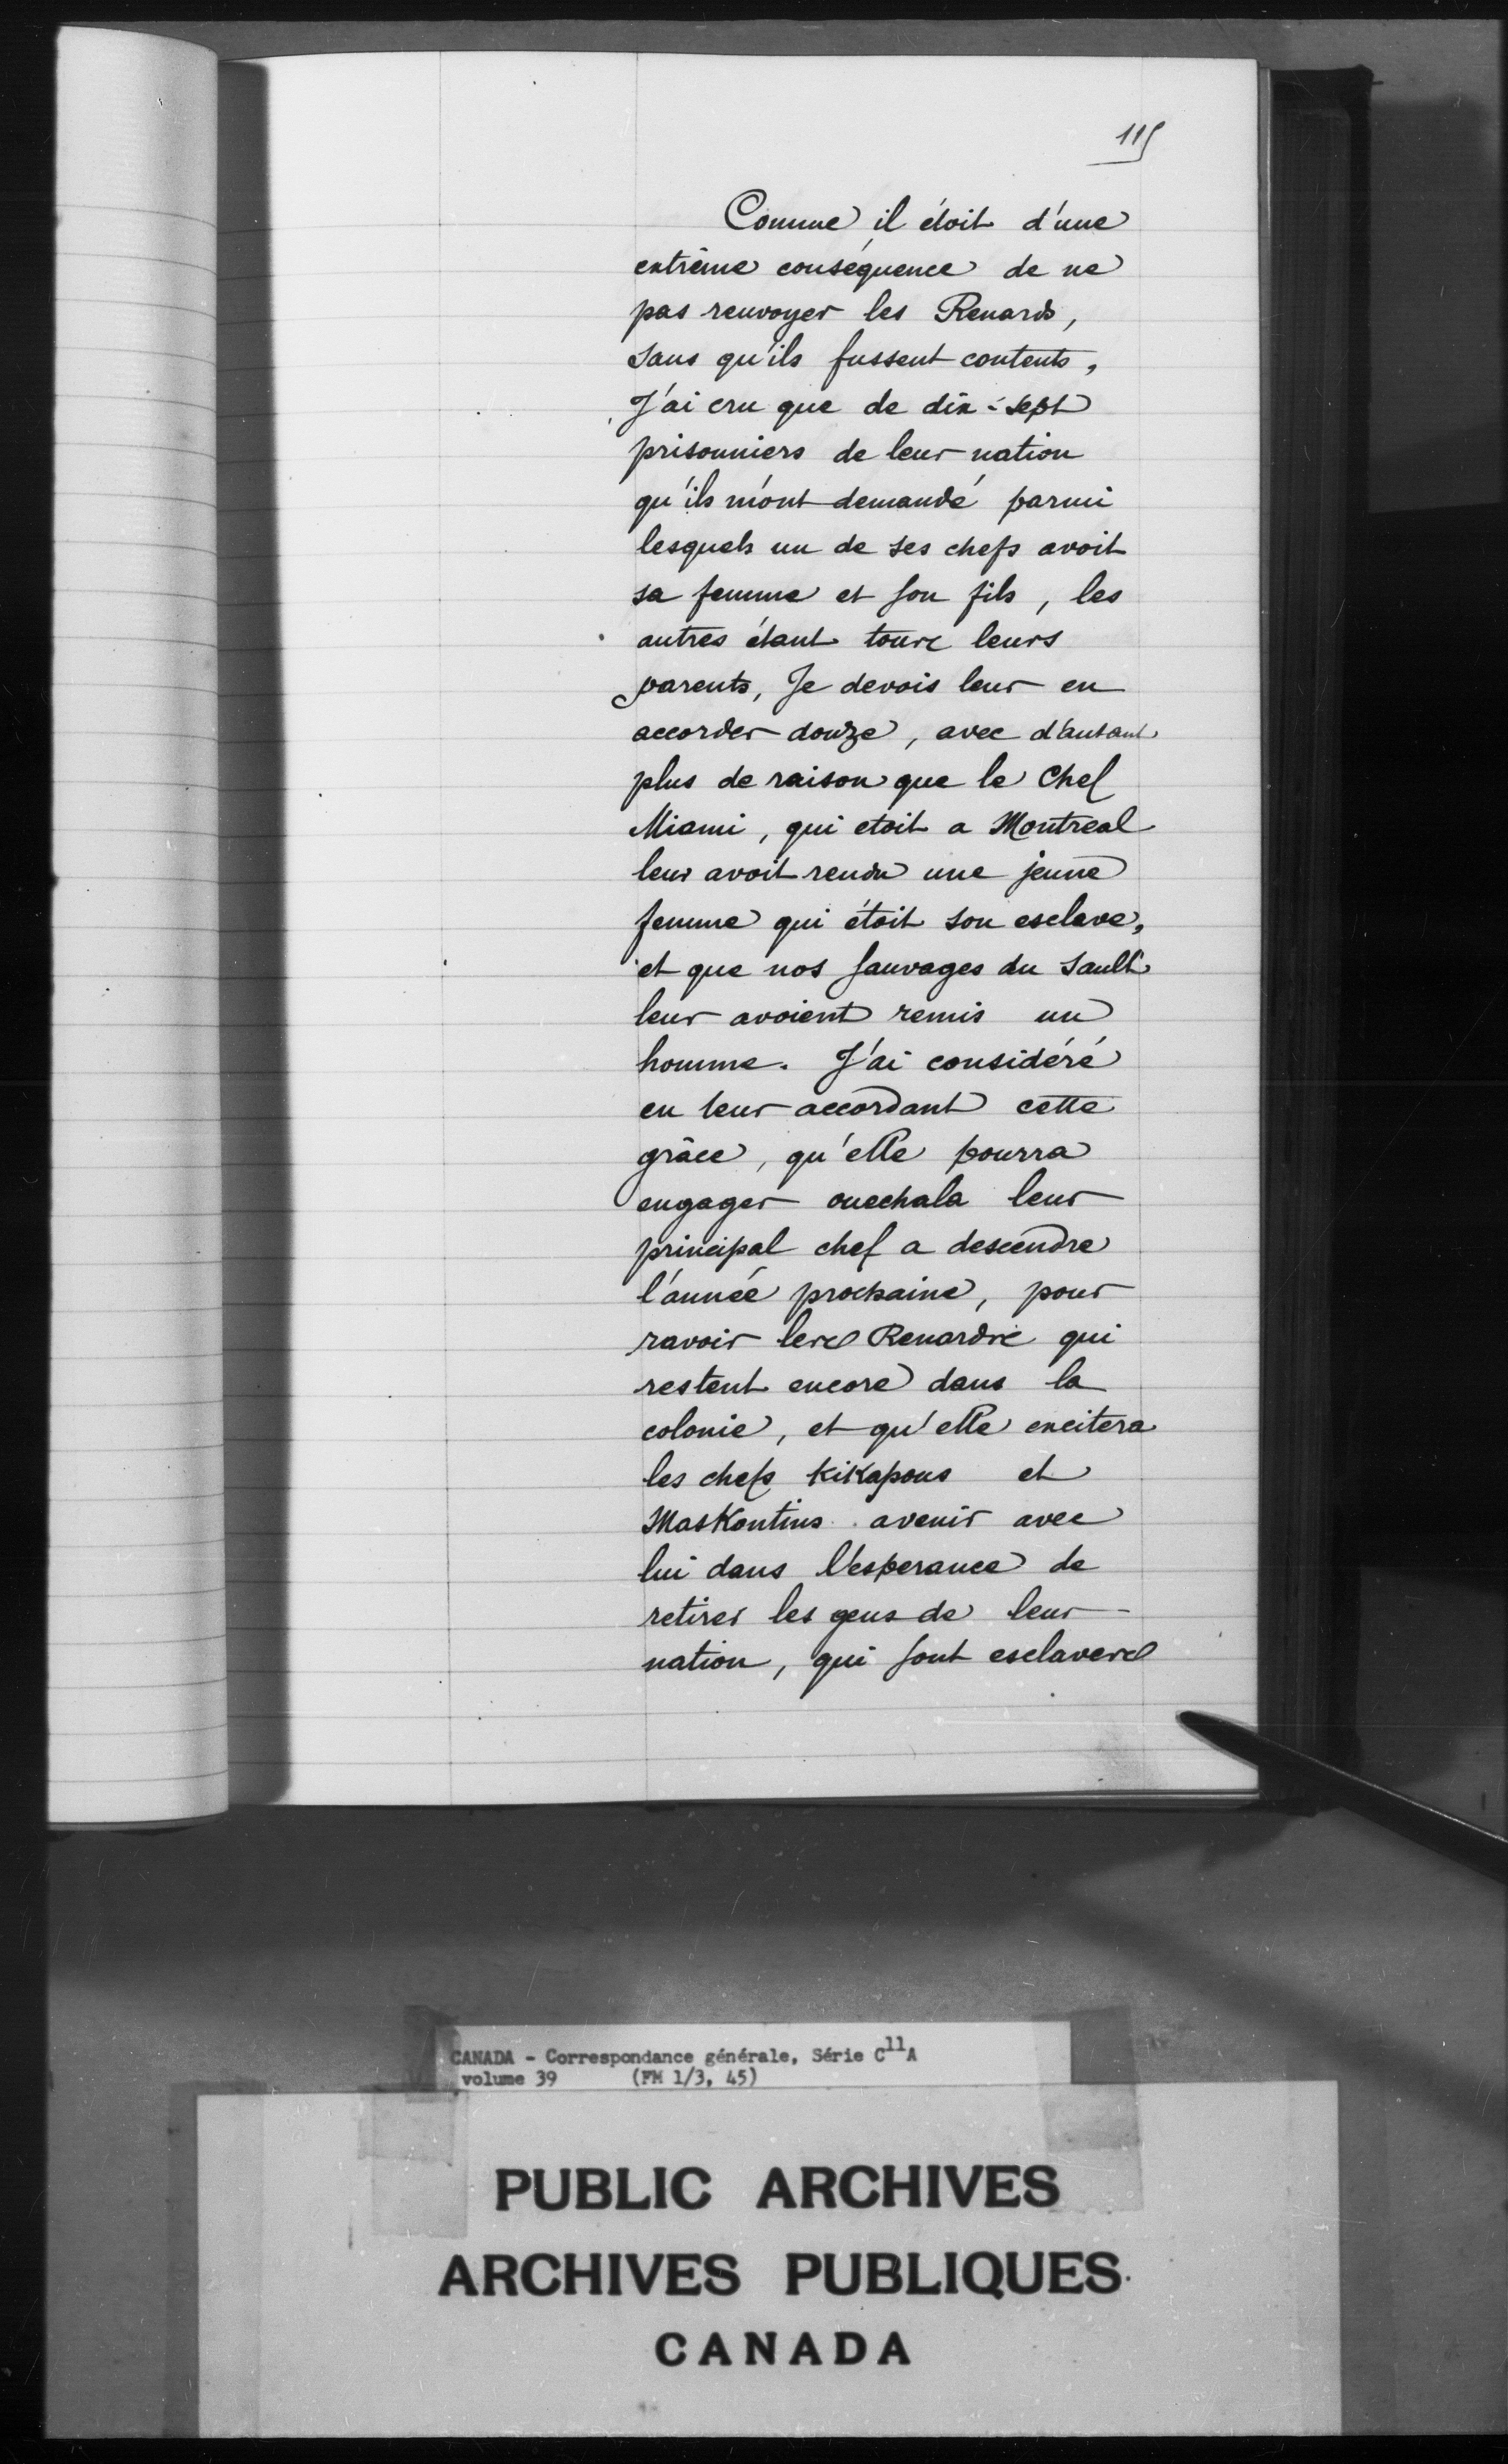 115
Comme il étoit d'une
extrême conséquence de ne
pas renvoyer les Renards,
sans qu'ils fussent contents,
J'ai cru que de dix-sept
prisonniers de leur nation
qu'ils m'ont demandé parmi
lesquels un de ses chefs avoit
sa femme et son fils, les
autres étant tous leurs
parents, Je devois leur en
accorder douze, avec d'autant
plus de raison que le Chef
Miami, qui etoit a Montreal
leur avoit rendu une jeune
femme qui étoit son esclave,
et que nos sauvages du sault
leur avoient remis un
homme. J'ai considéré
en leur accordant cette
grâce, qu'elle pourra
engager ouechala leur
principal chef a descendre
l'année prochaine, pour
ravoir les Renards qui
restent encore dans la
colonie, et qu'elle excitera
les chefs kikapous et
Maskoutins avenir avec
lui dans l'esperance de
retirer les gens de leur
nation, qui sont esclaves
CANADA - Correspondance générale, Série C11A
volume 39 (FM 1/3, 45)
PUBLIC ARCHIVES
ARCHIVES PUBLIQUES
CANADA